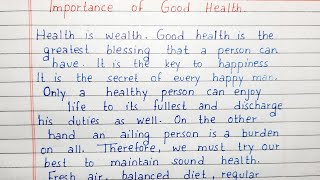 Importance of Good Health.
Health is wealth. Good health is the
greatest blessing that a person can
have. It is the key to happiness
It is the secret of every happy man.
Only a healthy person can enjoy
life to its fullest and discharge
his duties as well. On the other
hand an ailing person is a burden
on all. Therefore, we must try our
best to maintain sound health.
Fresh air, balanced diet, regular